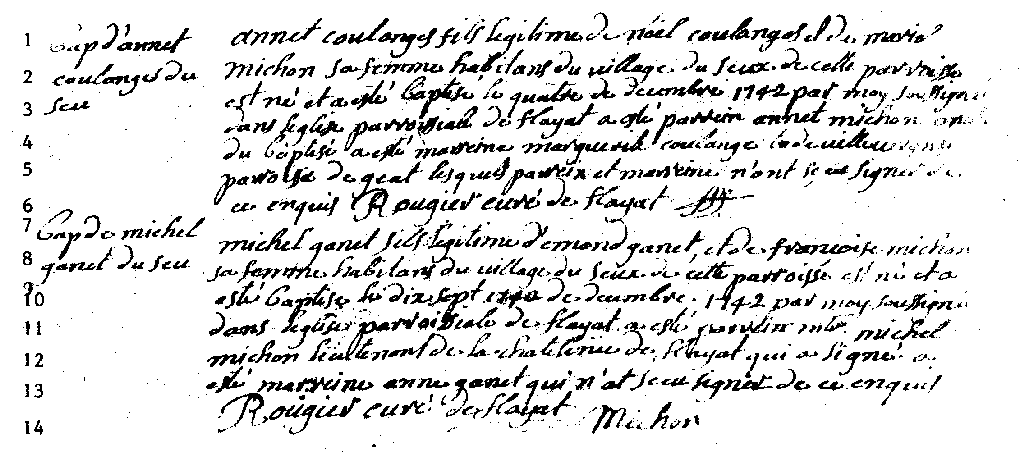 1 bap d'annet annet coulanges fils legitime de nöel coulanges et de marie
2 coulanges du michon sa femme habitans du village du seux de cette parroisse
3 seu est né et a esté baptisé le quatre de decembre 1742 par moy soussigné
4 dans l'eglise parroissiale de flayat a esté parrein annet michon
5 du baptisé a esté marreine marguerite coulange de
6 parroisse de geat lesquels parrein et marreine n'ont sceu signer de
7 ce enquis Rougier curé de flayat
bap de michel michel ganet fils legitime d'emond ganet, et de francoise michon
8 ganet du seu sa femme habitans du village du seux de cette parroisse est né et a
9
10 esté baptisé le dix sept de decembre 1742 par moy soussigné
11 dans l'eglise parroissiale de flayat a esté parrein mtre michel
12 michon lieutenant de la chatelenie de flayat qui a signé a
13 esté marreine anne ganet qui n'at sceu signer de ce enquis
14 Rougier curé de flayat Michon